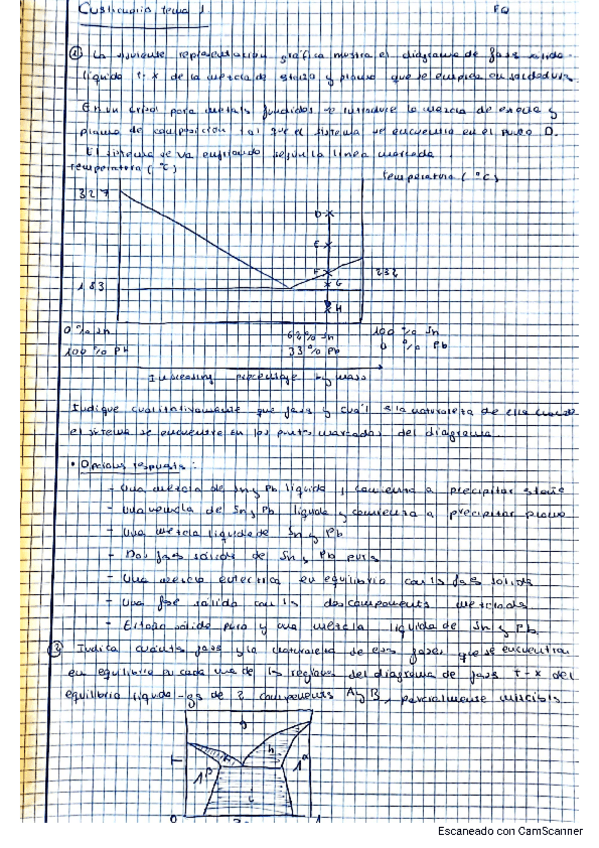 Cuestionario tema 1 FQ
① La siguiente representación gráfica muestra el diagrama de fases sólido-
líquido t-x de la mezcla de estaño y plomo que se emplea en soldadura.
En un crisol para metales fundidos se introduce la mezcla de estaño y
plomo de composición tal que el sistema se encuentra en el punto D.
El sistema se va enfriando según la línea marcada.
temperatura (°C)
temperatura (°C)
327
D
E
F
G
232
183
H
0% Sn
100% Pb
33% Pb
100% Sn
0% Pb
Increasing percentage by mass
Indique cualitativamente que fases y cuál es la naturaleza de ellas cuando
el sistema se encuentre en los puntos marcados del diagrama.
• Opciones respuesta:
- Una mezcla de Sn y Pb líquida y comienza a precipitar estaño
- Una mezcla de Sn y Pb líquida y comienza a precipitar plomo
- Una mezcla líquida de Sn y Pb
- Dos fases sólidas de Sn y Pb pura
- Una mezcla eutéctica en equilibrio con las fases sólidas
- Una fase sólida con los dos componentes mezclados
- Estaño sólido puro y una mezcla líquida de Sn y Pb.
Indica cuántas fases y la naturaleza de esas fases que se encuentran
en equilibrio en cada una de las regiones del diagrama de fases T-x del
equilibrio líquido-gas de 2 componentes A y B, parcialmente miscibles.
g
h
T
i
0
1
Escaneado con CamScanner